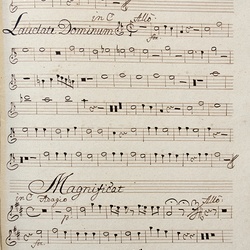 in C Allo
Laudate Dominum
for.
Magnificat
in C Adagio Allo
p for.